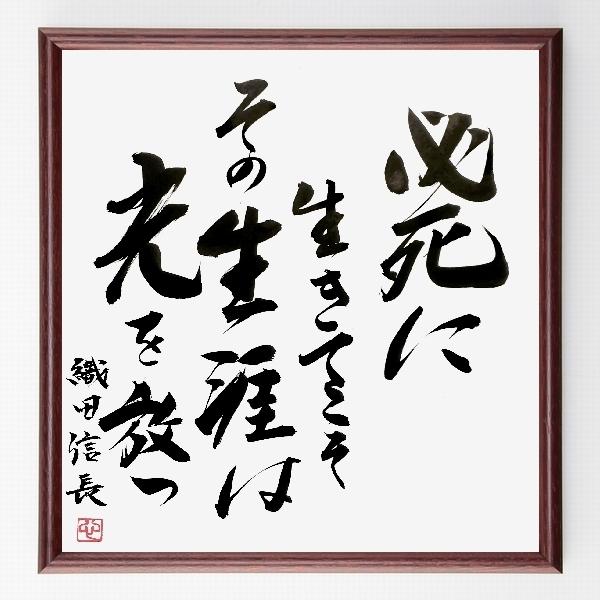 必死に
生きてこそ
その生涯は
光を放つ
織田信長